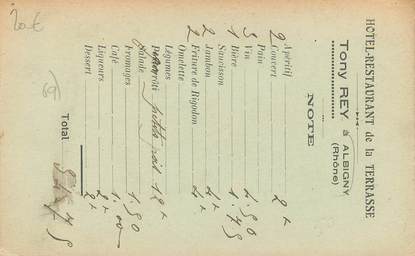 HÔTEL-RESTAURANT de la TERRASSE
Tony REY, à ALBIGNY
(Rhône)
NOTE
2 Apéritif 2"
2 Couvert
Pain
3 Vin 4.50
1 Bière 1.75
Saucisson
2 Jambon 4"
2 Friture de Rigodon 4"
Omelette
Légumes
petits pois 12"
Salade
Fromages 1.50
Café 1.00
Liqueurs 2"
Dessert 2"
Total
20 €
69)